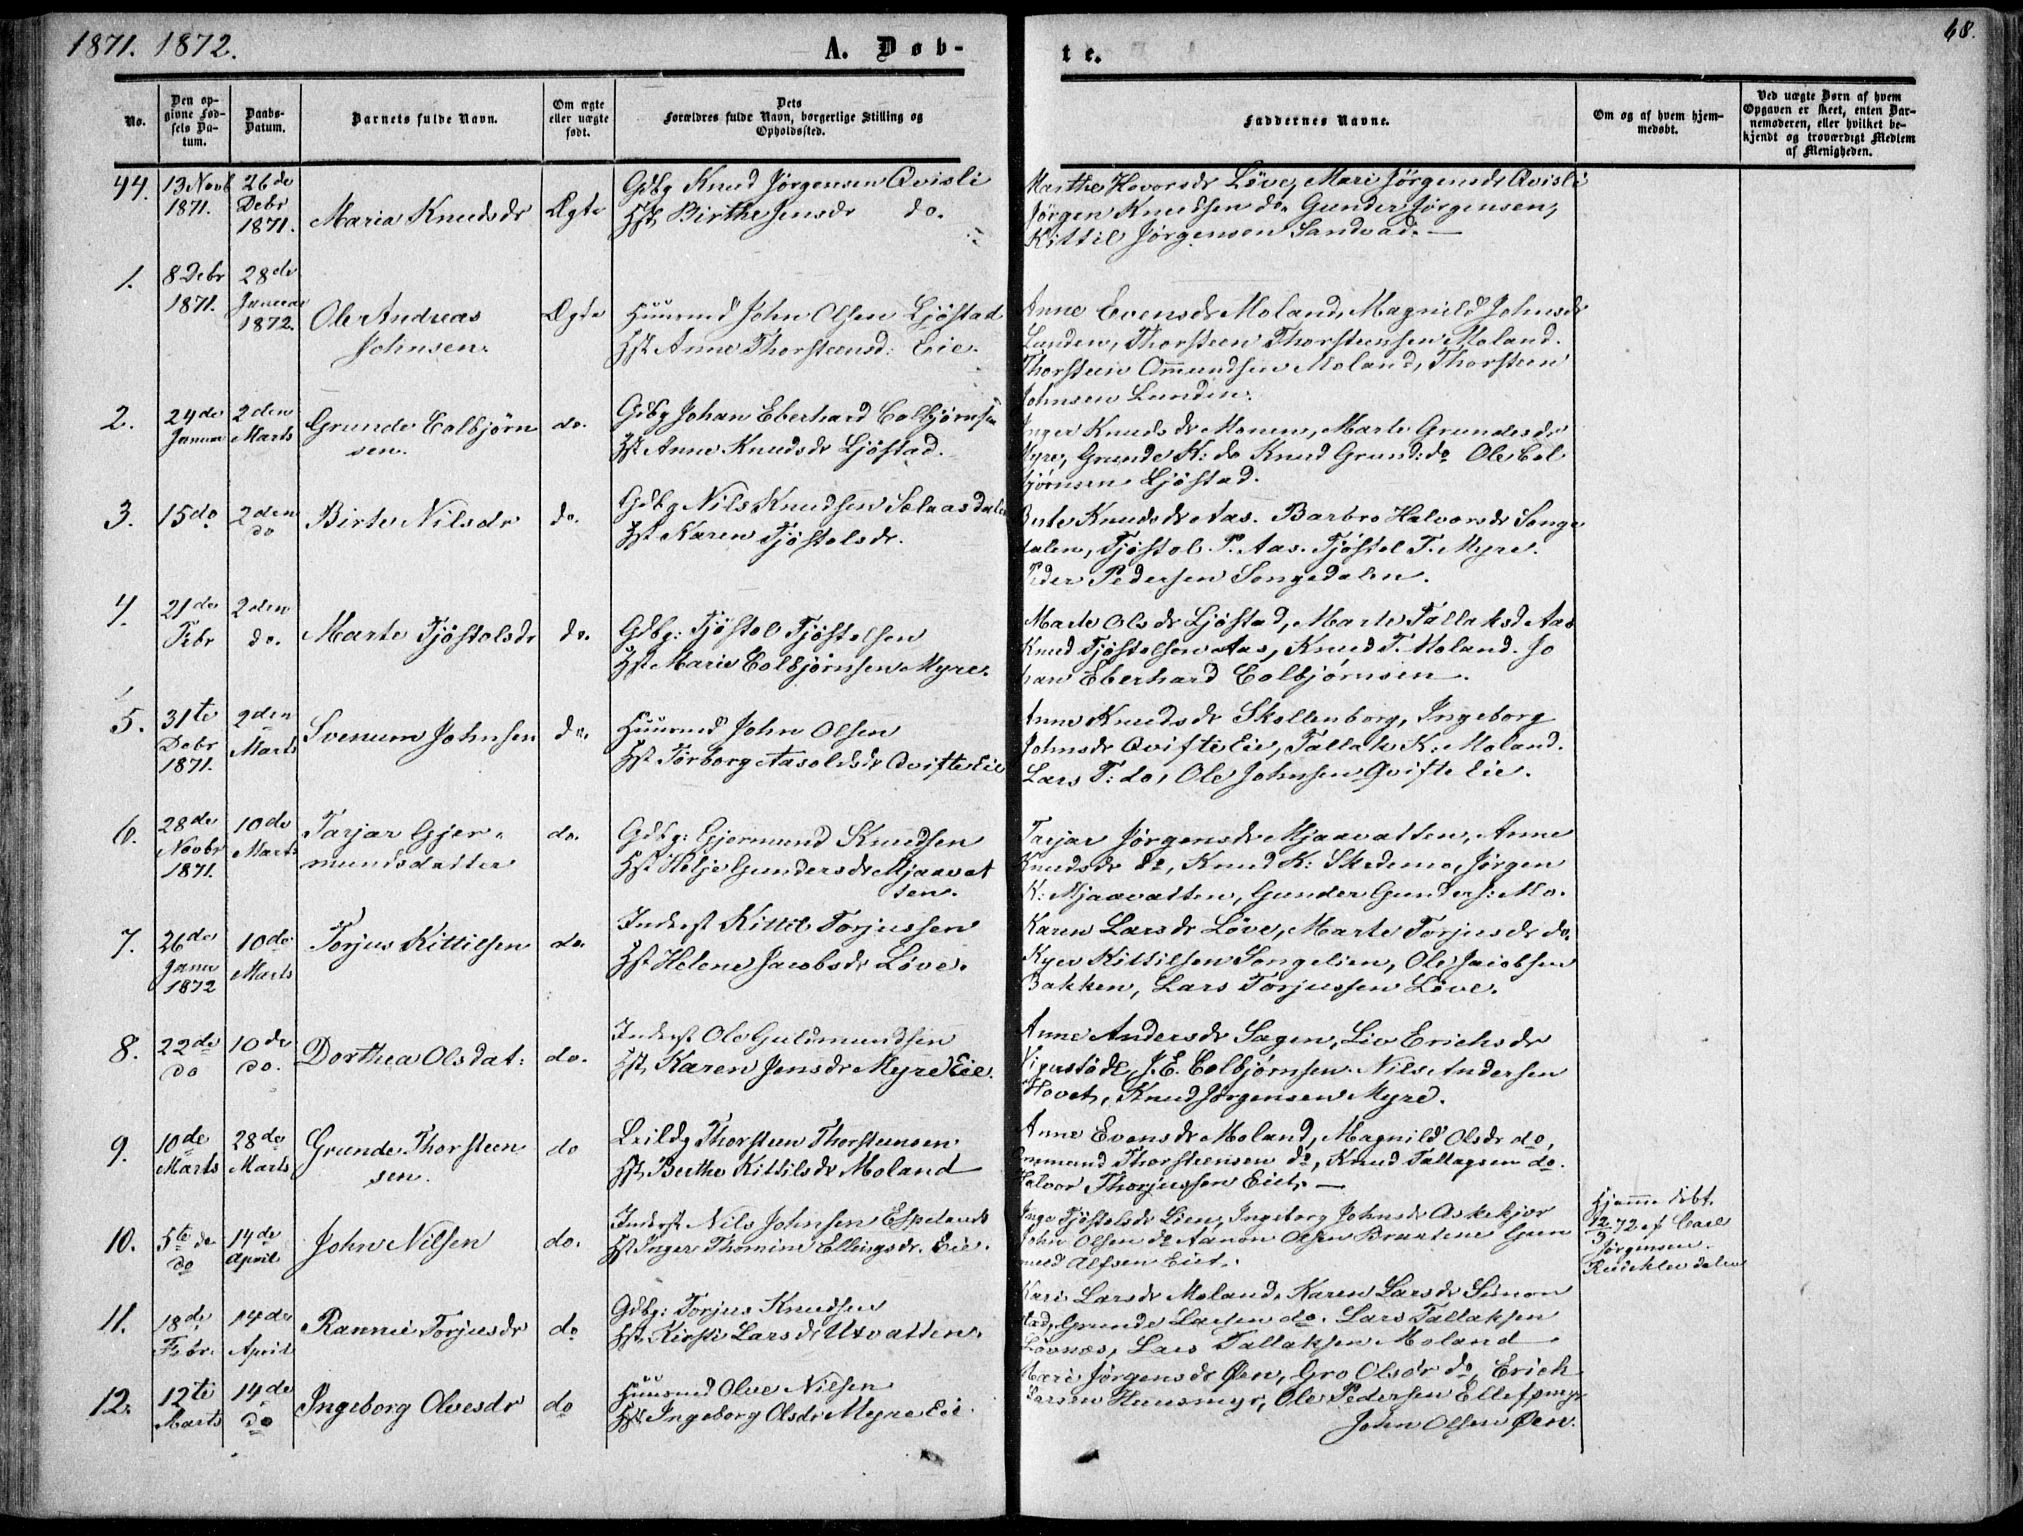 1871. 1872.
A. Døb-
te.
68.
No.
Den opgivne Fødsels Datum.
Daabs-Datum.
Barnets fulde Navn.
Om ægte eller uægte født.
Dets Forældres fulde Navn, borgerlige Stilling og Opholdssted.
Faddernes Navne.
Om og af hvem hjemmedøbt.
Ved uægte Børn af hvem Opgaven er skeet, enten Barnemoderen, eller hvilket bekjendt og troværdigt Medlem af Menigheden.
44. 13 Novb 1871. 26de Debr 1871. Maria Knudsdr Ægte
Gdbg Knud Jørgensen Qvisli
Hst Birthe Jensdr do.
Marthe Hovorsdr Löve, Mari Jörgensdr Qvisli
Jörgen Knudsen do. Gunder Jörgensen,
Kittil Jørgensen Sandvad. —
1. 8 Debr 1871. 28de Januar 1872. Ole Andreas Johnsen. Ægte
Huusmd John Olsen Ljöstad
Hst Anne Thorsteensd: Eie.
Anne Evensdr Moland, Magnild Johnsdr
Lunden, Thorsteen Thorsteensen Moland.
Thorsteen Omundsen Moland, Thorsteen
Johnsen Lunden.
2. 24de Januar 2den Marts Grunde Colbjörnsen. do.
Gdbg Johan Eberhard Colbjörnsen
Hst Anne Knudsdr Ljöstad.
Inger Knudsdr Monen, Marte Grundesdr
Myre, Grunde K: do Knud Grund: do Ole Col
björnsen Ljöstad.
3. 15do 2den do Birte Nilsdr do.
Gdbg Nils Knudsen Selaasdalen
Hst Karen Tjöstolsdr.
Birte Knudsdr Aas. Barbro Halvorsdr Songe
dalen, Tjöstol P. Aas. Tjöstol T. Myre.
Peder Pedersen Songedalen.
4. 21de Febr 2den do. Marte Tjöstolsdr do.
Gdbg: Tjöstol Tjöstolsen
Hst Marie Colbjørnsen Myre.
Marte Olsdr Ljöstad, Marte Tallaksd Aas
Knud Tjöstolsen Aas, Knud T. Moland. Jo
han Eberhard Colbjørnsen.
5. 31te Debr 1871. 2den Marts Svenum Johnsen do.
Huusmd John Olsen
Hst Torborg Aasoldsdr Qvifte Eie
Anne Knudsdr Skollenborg, Ingeborg
Johnsdr Qvifte Eie, Tallak K: Moland.
Lars T: do, Ole Johnsen Qvifte Eie.
6. 28de Novbr 1871. 10de Marts Tarjar Gjermundsdatter do.
Gdbg: Gjermund Knudsen
Hst Helje Gundersdr Mjaavat
ten.
Tarjar Jørgensdr Mjaavatten, Anne
Knudsdr do, Knud K: Skedemo, Jörgen
K: Mjaavatten, Gunder Gunders: Mo.
7. 26de Janu 1872 10de Marts Torjus Kittilsen do.
Inderst Kittil Torjussen
Hst Helene Jacobsdr Löve.
Karen Larsdr Löve, Marte Torjusdr do.
Kyer Kittilsen Songelien, Ole Jacobsen
Bakken, Lars Torjussen Löve.
8. 22de do 10de do. Dorthea Olsdat: do.
Inderst Ole Guldmundsen
Hst Karen Jensdr Myre Eie.
Anne Andersdr Sagen, Liv Erichsdr
Vigerstöl, J. E. Colbjørnsen. Nils Andersen
Hovet, Knud Jørgensen Myre.
9. 10de Marts 28de Marts Grunde Thorsteensen. do
Leildg Thorsteen Thorsteensen
Hst Berthe Kittilsdr Moland
Anne Evensdr Moland, Magnild Olsdr do.
Ommund Thorsteensen do, Knud Tallagsen do.
Halvor Thorjussen Eiet. —
10. 5te do 14de April John Nilsen do.
Inderst Nils Johnsen Espelands
Hst Inger Thomine Ellingsdr. Eie.
Inge Tjöstolsdr Lien, Ingeborg Johnsdr Askekjær
John Olsen do Aanon Olsen Braatene Gun
nuld Alfsen Eiet.
Hjemme döbt.
12/3 72 af Carl
Jörgensen.
11. 18de Febr. 14de April Rannie Torjusdr do
Gdbg: Torjus Knudsen
Hst. Kirsti Larsdr Uxvatten.
Kari Larsdr Moland. Karen Larsdr Simon
stad, Grunde Larsen do. Lars Tallaksen
Lövnæs, Lars Tallaksen Moland
12. 12te Marts 14de do Ingeborg Olvesdr do
Huusmd Olve Nilsen
Hst Ingeborg Olsdr Myre Eie.
Mari Jørgensdr Øen, Gro Olsdr do, Erich
Larsen Huusmyr, Ole Pedersen Ellefsmyr
John Olsen Øen.